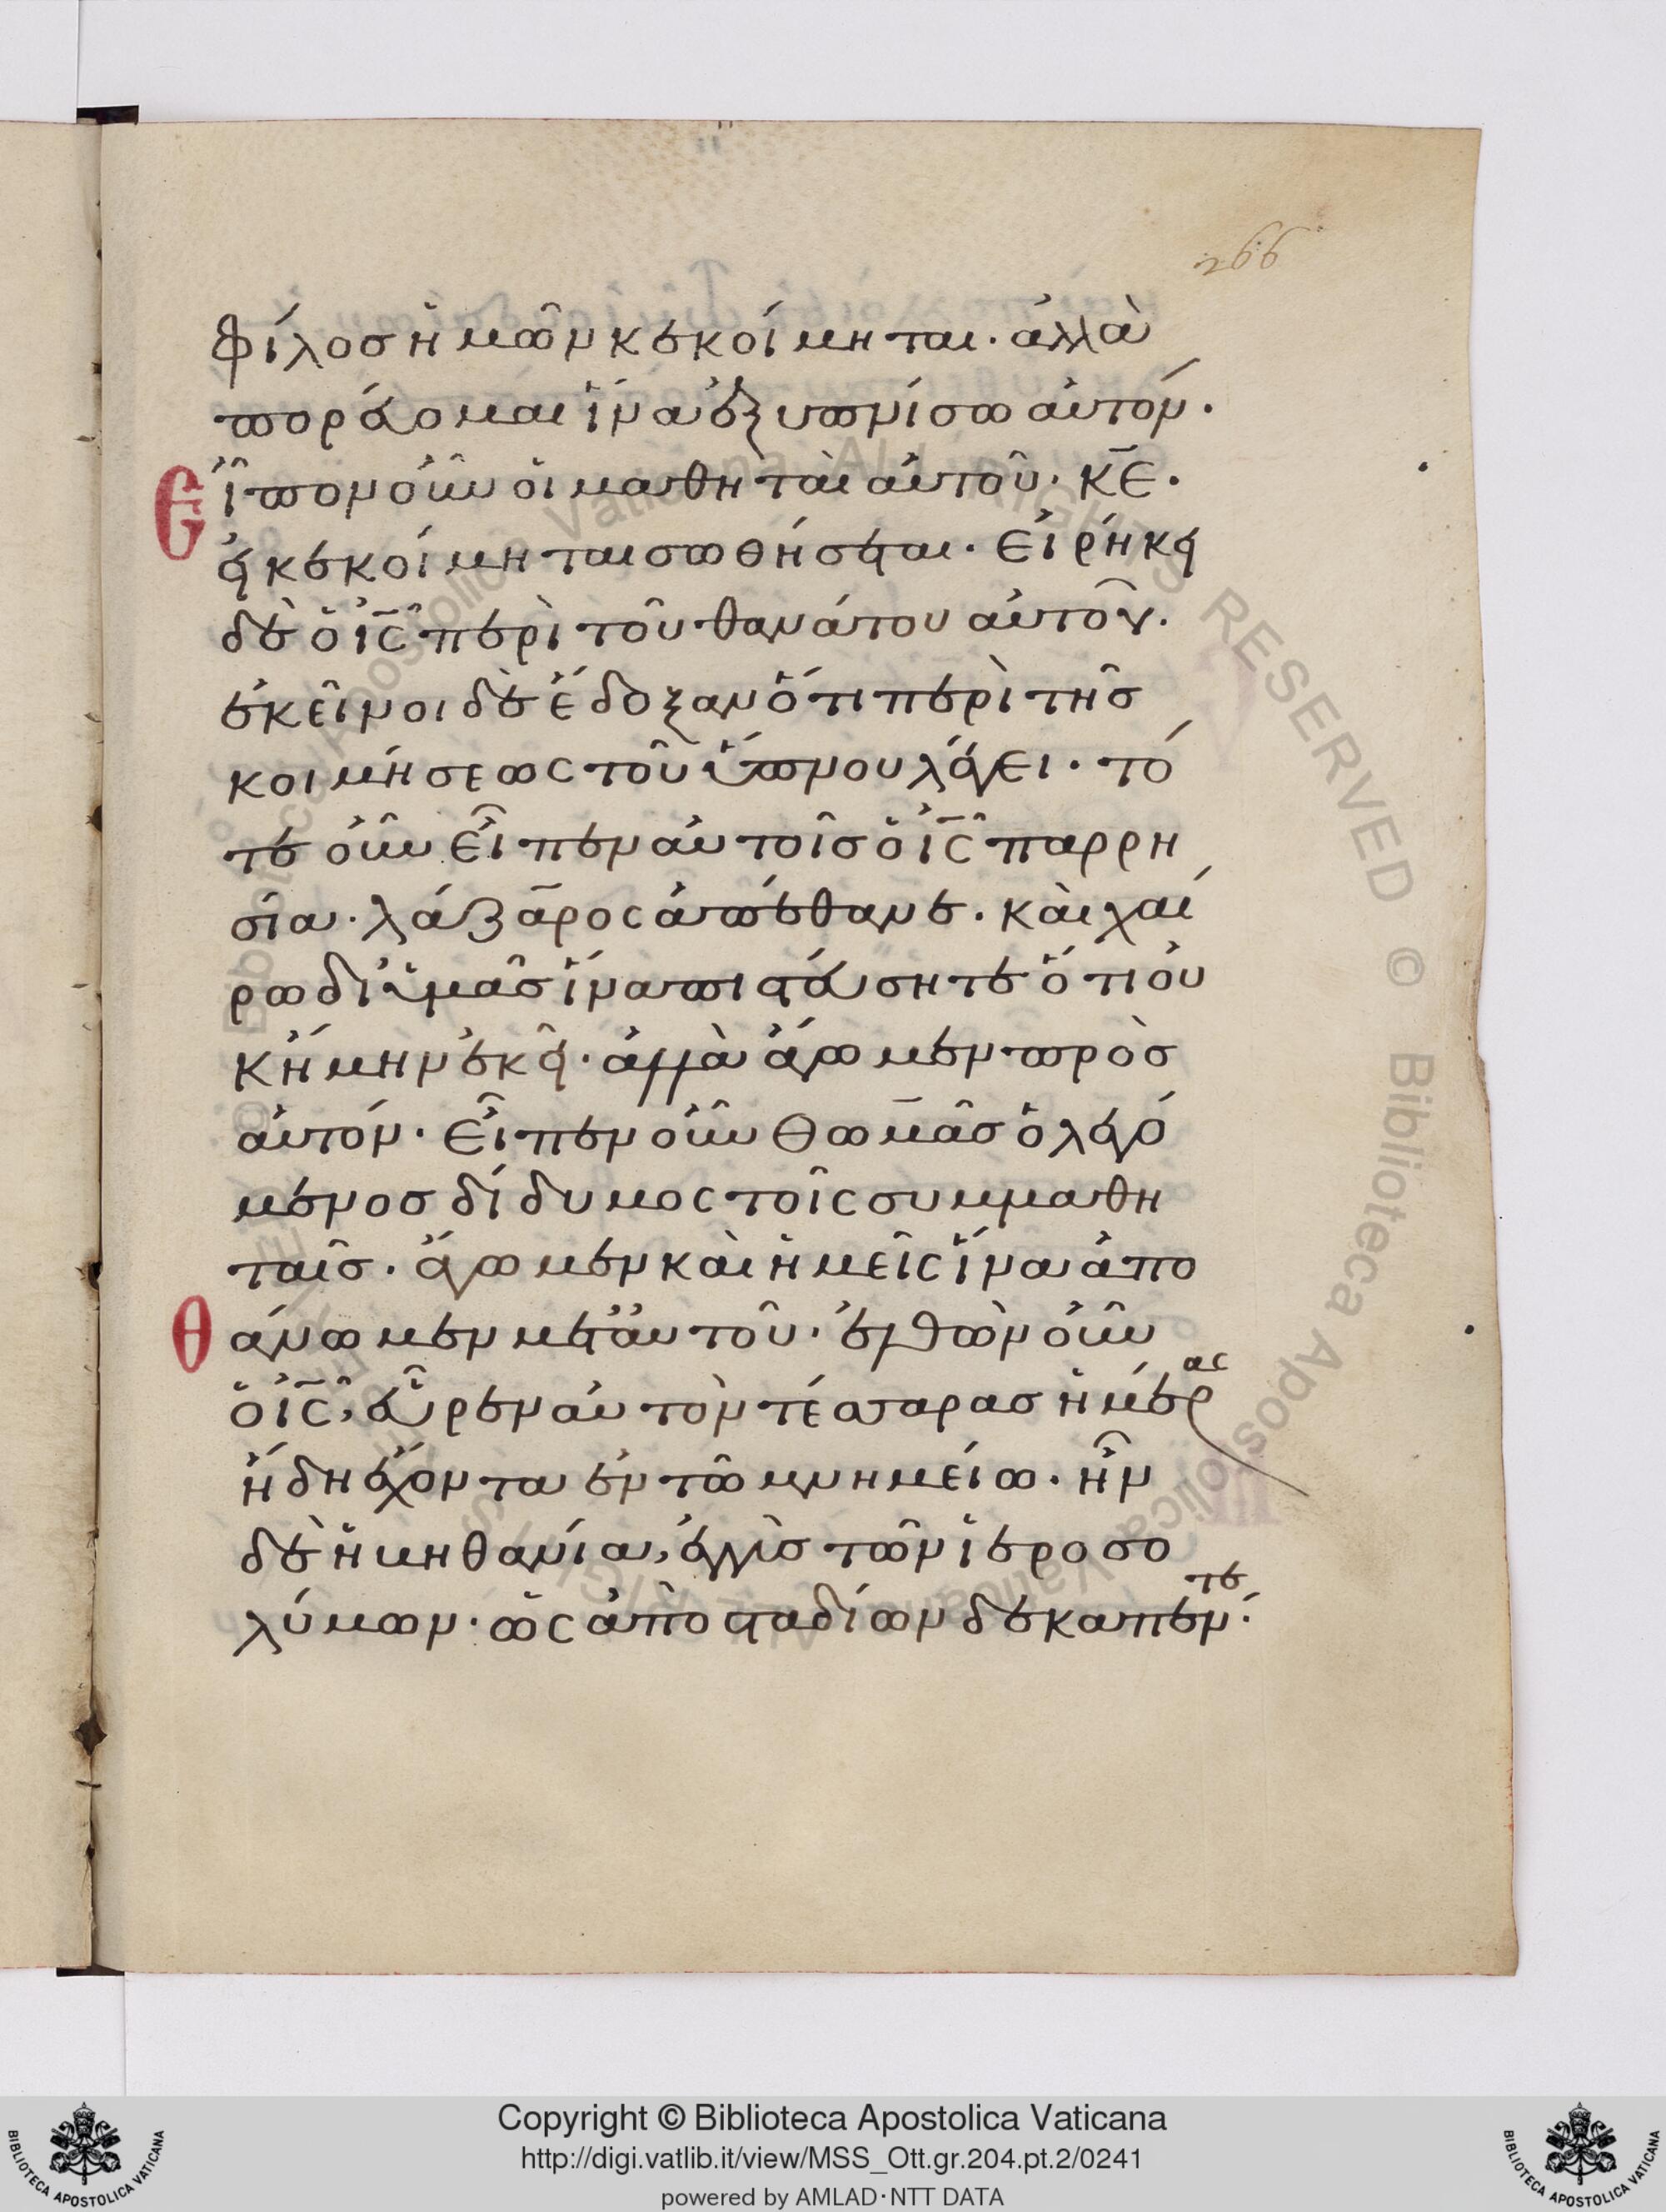 266
φίλος ἡμῶν κεκοίμηται· ἀλλὰ
πορεύομαι ἵνα ἐξυπνίσω αὐτόν·
Εἶπον οὖν οἱ μαθηταὶ αὐτοῦ· κ̅ε̅·
εἰ κεκοίμηται σωθήσεται· εἰρήκει
δὲ ὁ ι̅ς̅ περὶ τοῦ θανάτου αὐτοῦ·
ἐκεῖνοι δὲ ἔδοξαν ὅτι περὶ τῆς
κοιμήσεως τοῦ ὕπνου λέγει· τό
τε οὖν εἶπεν αὐτοῖς ὁ ι̅ς̅ παρρη
σία· λάζαρος ἀπέθανε· καὶ χαί
ρω δι ὑμᾶς ἵνα πιστεύσητε ὅτι οὐ
κ ἤμην ἐκεῖ· ἀλλὰ ἄγωμεν πρὸς
αὐτόν· εἶπεν οὖν θωμᾶς ὁ λεγό
μενος δίδυμος τοῖς συμμαθη
ταῖς· ἄγωμεν καὶ ἡμεῖς ἵνα ἀπο
θάνωμεν μετ αὐτοῦ· ἐλθὼν οὖν
ὁ ι̅ς̅, εὗρεν αὐτὸν τέσσαρας ἡμέρας
ἤδη ἔχοντα ἐν τῶ μνημείω· ἦν
δὲ ἡ βηθανία, ἐγγὺς τῶν ἱεροσο
λύμων· ὡς ἀπὸ σταδίων δεκαπέντε·
© Biblioteca Apostolica Vaticana ALL RIGHTS RESERVED © Biblioteca Apostolica Vaticana ALL RIGHTS RESERVED
BIBLIOTECA APOSTOLICA VATICANA
Copyright © Biblioteca Apostolica Vaticana
http://digi.vatlib.it/view/MSS_Ott.gr.204.pt.2/0241
powered by AMLAD·NTT DATA
BIBLIOTECA APOSTOLICA VATICANA